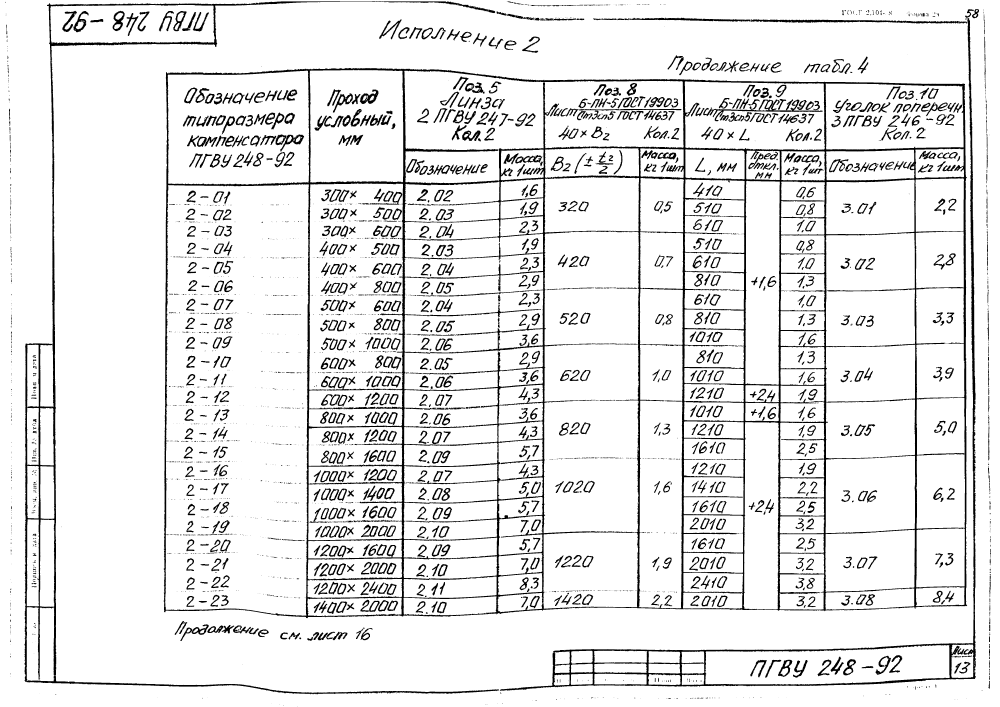 ПГВУ 248-92
ГОСТ 2.104-
58
Исполнение 2
Продолжение табл. 4
Обозначение типоразмера компенсатора ПГВУ 248-92 | Проход условный, мм | Поз. 5 Линза 2 ПГВУ 247-92 Кол. 2 | Поз. 8 Лист Б-ПН-5 ГОСТ 19903 / Ст3сп5 ГОСТ 14637 40×B2 Кол. 2 | Поз. 9 Лист Б-ПН-5 ГОСТ 19903 / Ст3сп5 ГОСТ 14637 40×L Кол. 2 | Поз. 10 Уголок попереч. 3 ПГВУ 246-92 Кол. 2
Обозначение | Масса, кг 1шт | B2 (± t2/2) | Масса, кг 1шт | L, мм | Пред. откл. мм | Масса, кг 1шт | Обозначение | Масса, кг 1шт
2-01 300×400 2.02 1,6 320 0,5 410 +1,6 0,6 3.01 2,2
2-02 300×500 2.03 1,9 510 0,8
2-03 300×600 2.04 2,3 610 1,0
2-04 400×500 2.03 1,9 420 0,7 510 0,8 3.02 2,8
2-05 400×600 2.04 2,3 610 1,0
2-06 400×800 2.05 2,9 810 1,3
2-07 500×600 2.04 2,3 520 0,8 610 1,0 3.03 3,3
2-08 500×800 2.05 2,9 810 1,3
2-09 500×1000 2.06 3,6 1010 1,6
2-10 600×800 2.05 2,9 620 1,0 810 1,3 3.04 3,9
2-11 600×1000 2.06 3,6 1010 1,6
2-12 600×1200 2.07 4,3 1210 +2,4 1,9
2-13 800×1000 2.06 3,6 820 1,3 1010 +1,6 1,6 3.05 5,0
2-14 800×1200 2.07 4,3 1210 +2,4 1,9
2-15 800×1600 2.09 5,7 1610 2,5
2-16 1000×1200 2.07 4,3 1020 1,6 1210 1,9 3.06 6,2
2-17 1000×1400 2.08 5,0 1410 2,2
2-18 1000×1600 2.09 5,7 1610 2,5
2-19 1000×2000 2.10 7,0 2010 3,2
2-20 1200×1600 2.09 5,7 1220 1,9 1610 2,5 3.07 7,3
2-21 1200×2000 2.10 7,0 2010 3,2
2-22 1200×2400 2.11 8,3 2410 3,8
2-23 1400×2000 2.10 7,0 1420 2,2 2010 3,2 3.08 8,4
Продолжение см. лист 16
ПГВУ 248-92
Лист
13